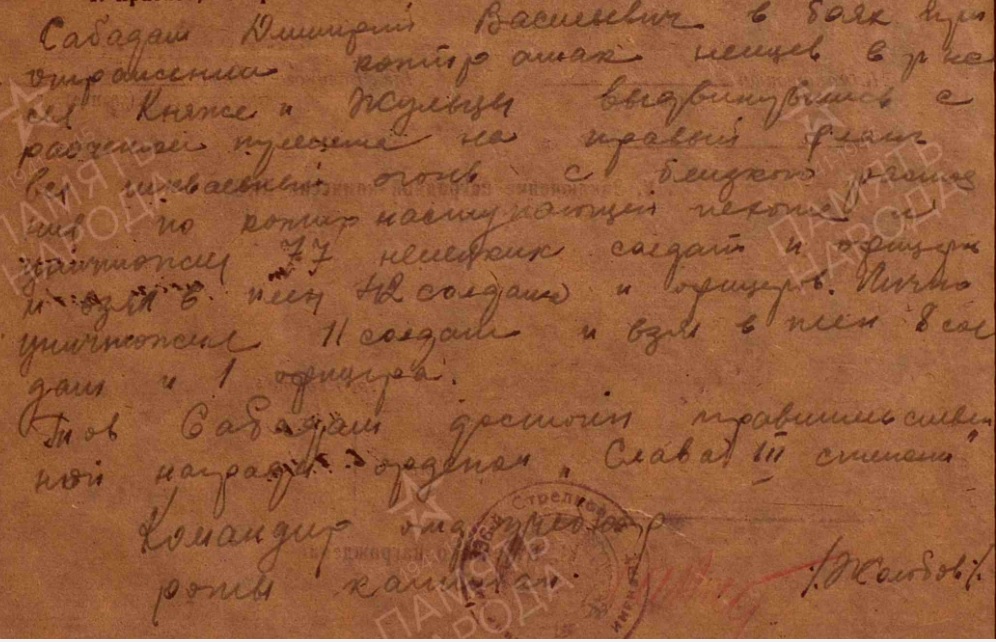 Сабадаш Дмитрий Васильевич в боях при
отражении контратак немцев в р-не
сел Княже и Жульцы выдвинувшись с
расчетом пулемета на правый фланг
вел шквальный огонь с близкого расстоя
ния по контрнаступающей пехоте и
уничтожил 77 немецких солдат и офицеров
и взял в плен 42 солдата и офицеров. Лично
уничтожил 11 солдат и взял в плен 8 сол
дат и 1 офицера.
Тов Сабадаш достоин правительствен
ной награды орденом "Слава III степени"
Командир
роты капитан /Жолобов/.
ПАМЯТЬ НАРОДА